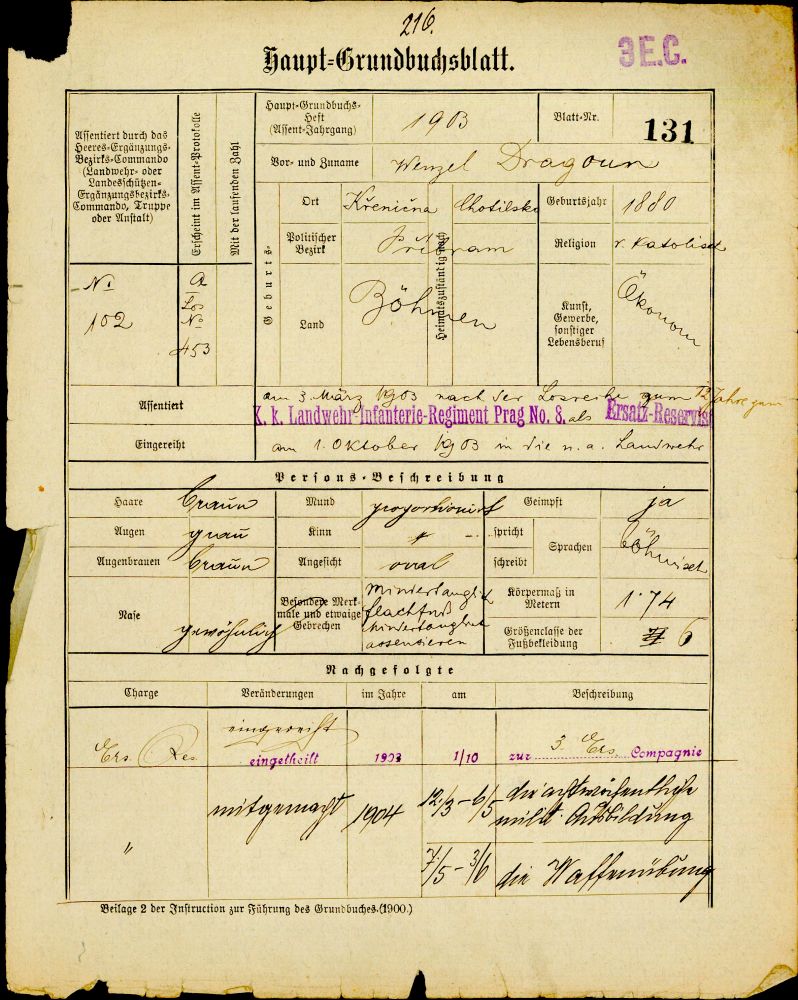 216.
Haupt-Grundbuchsblatt.
3E.C.
Assentiert durch das
Heeres-Ergänzungs-
Bezirks-Commando
(Landwehr- oder
Landesschützen-
Ergänzungsbezirks-
Commando, Truppe
oder Anstalt)
Erscheint im Assent-Protokolle
Mit der laufenden Zahl
No.
102
a
Los
No
453
Haupt-Grundbuchs-
Heft
(Assent-Jahrgang)
1903
Blatt-Nr.
131
Vor- und Zuname
Wenzel Dragoun
Geburts-
Heimatszuständig nach
Ort
Křenična Chotilsko
Geburtsjahr
1880
Politischer
Bezirk
Přibram
Religion
r. katolisch
Land
Böhmen
Kunst,
Gewerbe,
sonstiger
Lebensberuf
Ökonom
Assentiert
am 3. März 1903 nach der Losreihe zum 12 Jahre zum
K. k. Landwehr-Infanterie-Regiment Prag No. 8. als Ersatz-Reservist
Eingereiht
am 1. Oktober 1903 in die n. a. Landwehr
Persons-Beschreibung
Haare
braun
Mund
proportionirt
Geimpft
ja
Augen
grau
Kinn
"
spricht
schreibt
Sprachen
böhmisch
Augenbrauen
braun
Angesicht
oval
Nase
gewöhnlich
Besondere Merk-
male und etwaige
Gebrechen
Mindertauglich
flachfuß
mindertauglich
assentieren
Körpermaß in
Metern
1·74
Größenclasse der
Fußbekleidung
6
Nachgefolgte
Charge
Veränderungen
im Jahre
am
Beschreibung
eingereiht
Ers. Res.
eingetheilt
1903
1/10
zur 3. Ers. Compagnie
mitgemacht
1904
12/3 – 6/5
die achtwöchentliche
milit. Ausbildung
"
7/5 – 3/6
die Waffenübung
Beilage 2 der Instruction zur Führung des Grundbuches. (1900.)